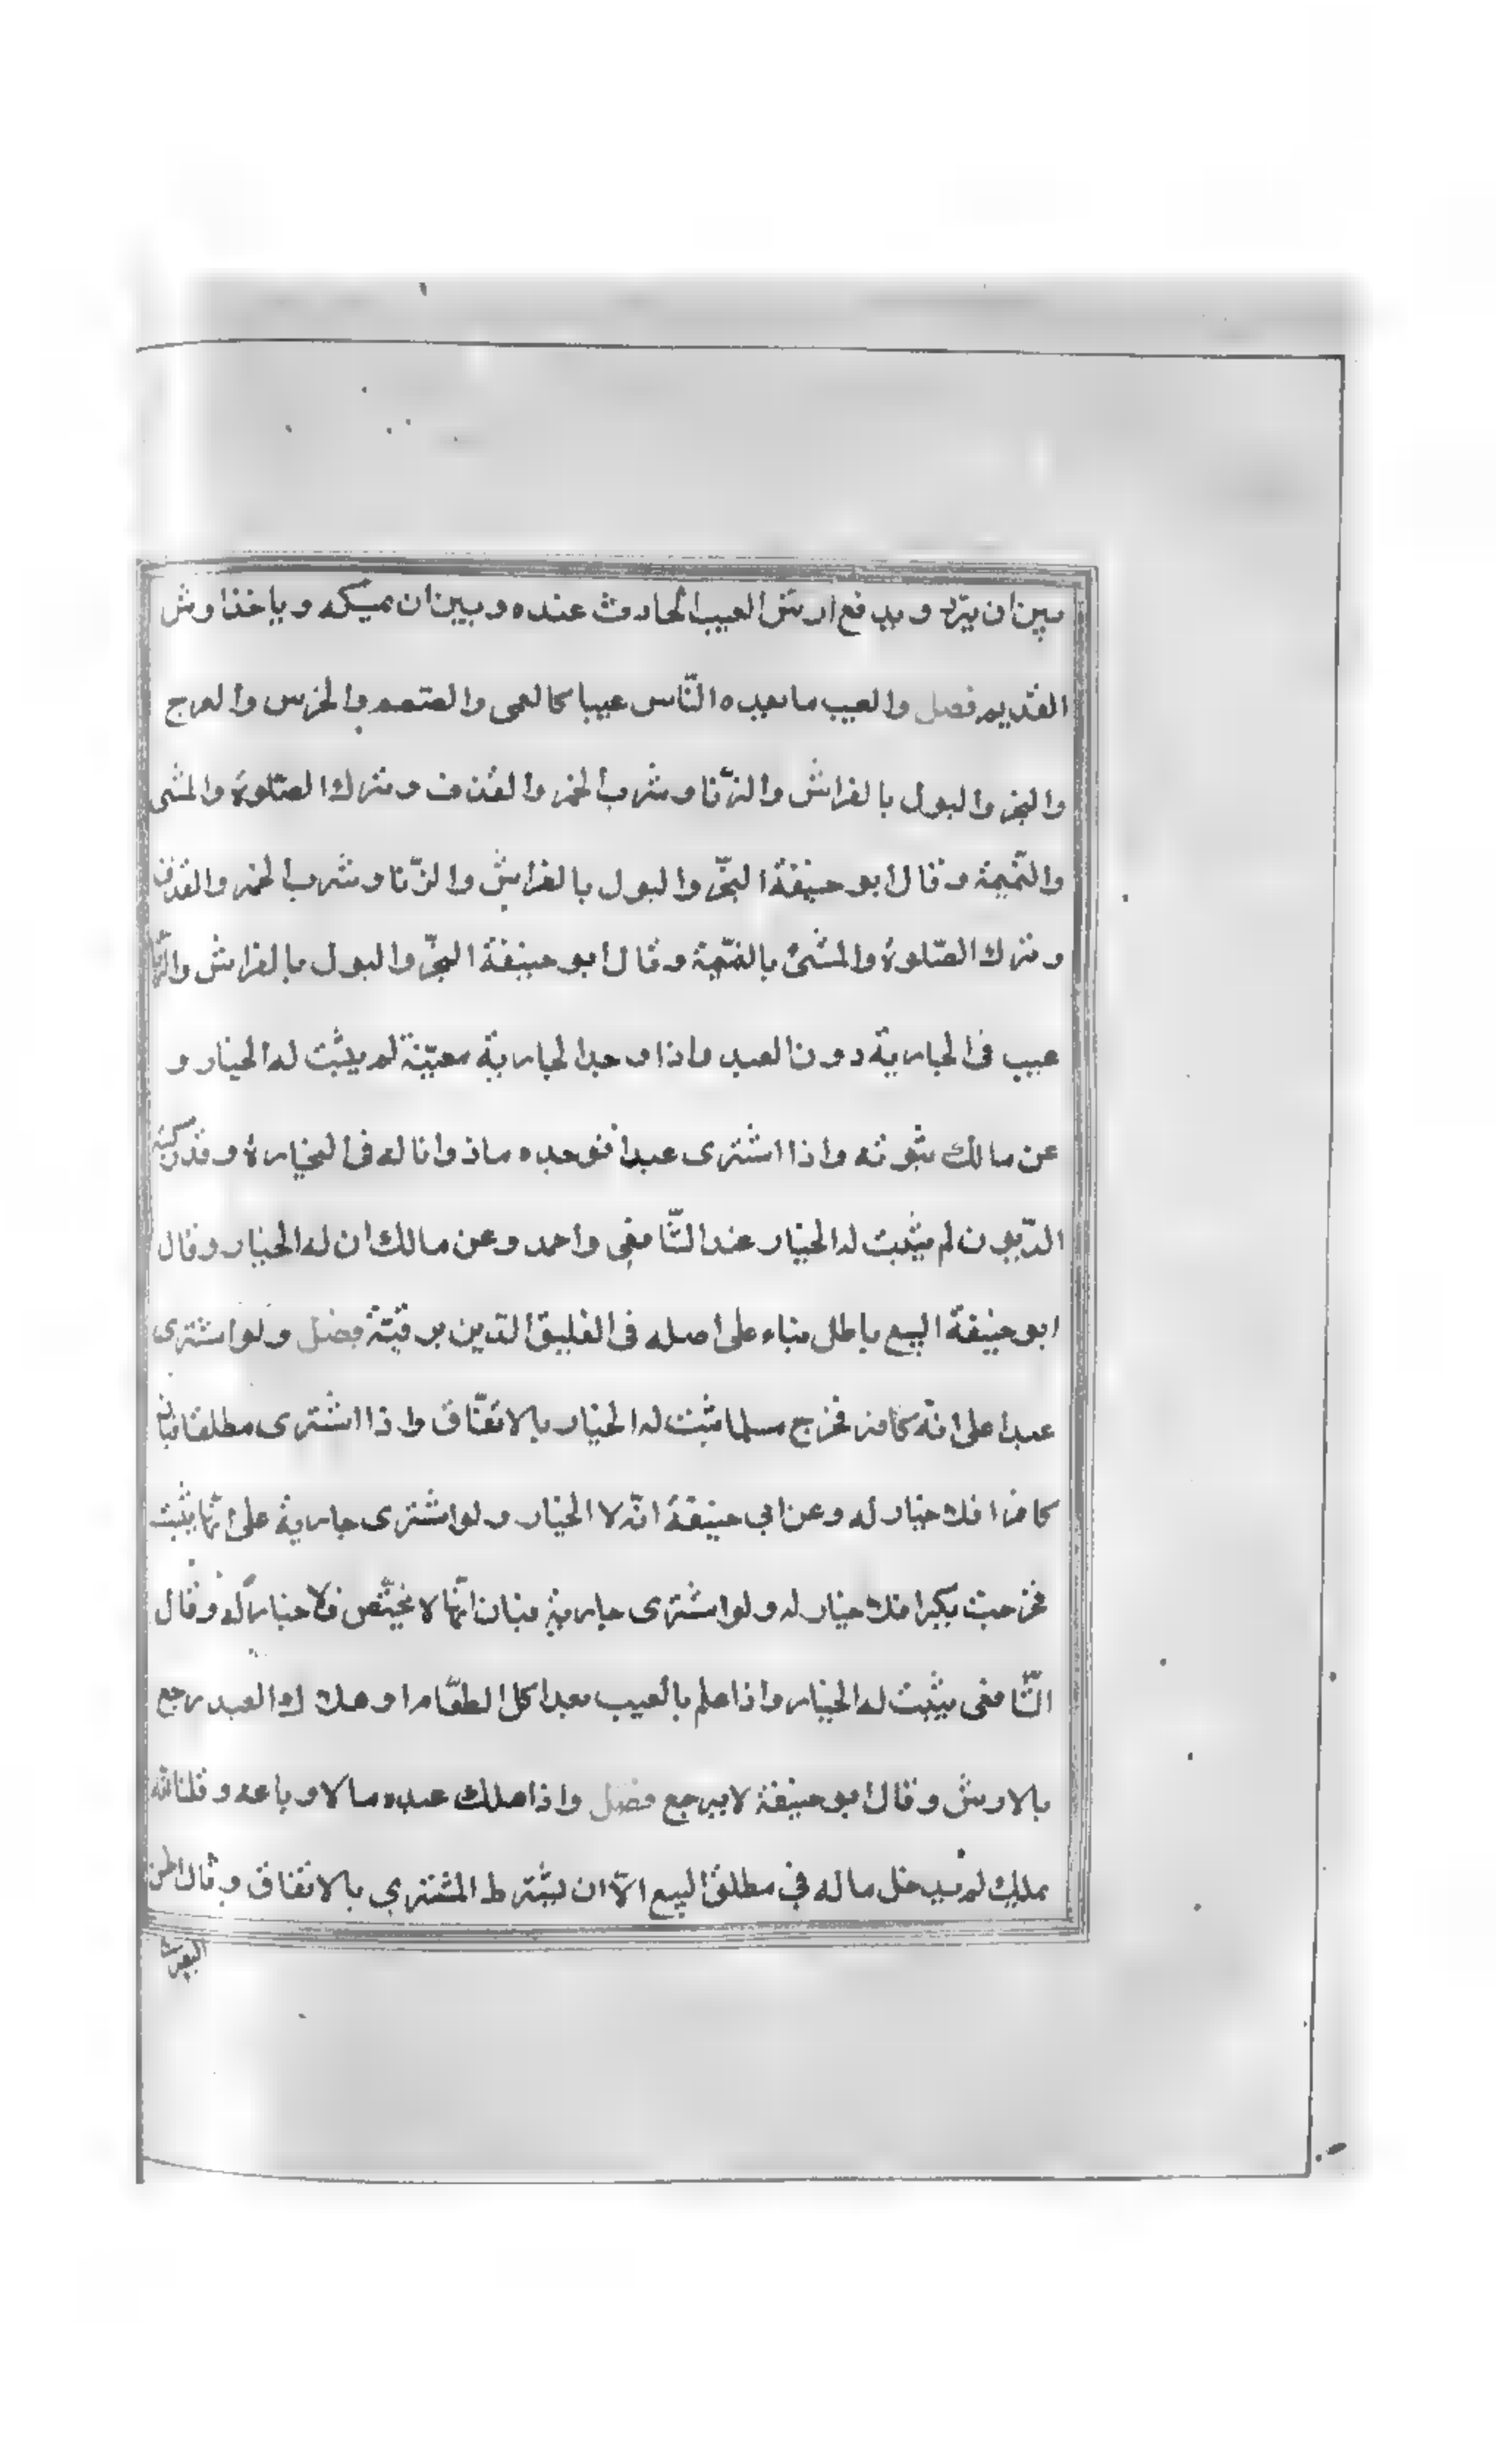 بين ان يرد و يدفع ارش العيب الحادث عنده و بين ان يمسكه و ياخذ ارش
القديم فصل والعيب ما يعده الناس عيبا كالعمى والصمم والخرس والعرج
والبخر والبول بالفراش والزّنا وشرب الخمر والقذف وترك الصّلوة والمشى
والنّميمة وقال ابو حنيفة البخّر والبول بالفراش والزّنا وشرب الخمر والقذف
وترك الصّلوة والمشئ بالنمّيمة وقال ابو حنيفة البخّر والبول بالفراش والزّنا
عيب فى الجارية دون العبد واذا وجد الجارية معيّنة لم يثبت له الخيار و
عن مالك ثبوته واذا اشترى عبدا فوجده ماذونا له فى التجارة وقد ركبته
الدّيون لم يثبت له الخيار عند الشّافعى واحمد وعن مالك ان له الخيار وقال
ابو حنيفة البيع باطل بناء على اصله فى تعليق الدّين برقبتة فصل ولو اشترى
عبدا على انّه كافر فخرج مسلما ثبت له الخيار بالاتفّاق واذا اشترى مطلقا فبان
كافرا فلا خيار له وعن ابى حنيفة انّه لا الخيار ولو اشترى جارية على انّها ثيّبت
فخرجت بكرا فلا خيار له ولو اشترى جارية فبان انّها لا تحيّض فلا خيار له وقال
الشّافعى يثبت له الخيار واذا علم بالعيب بعد اكل الطعّام او هلاك العبد رجع
بالارش وقال ابو حنيفة لا يرجع فصل واذا ملك عبده مالا وباعه وقلنا انّه
يملك لم يدخل ماله في مطلق البيع الّا ان يشترط المشتري بالاتفاق وقال الحسن
البصرى